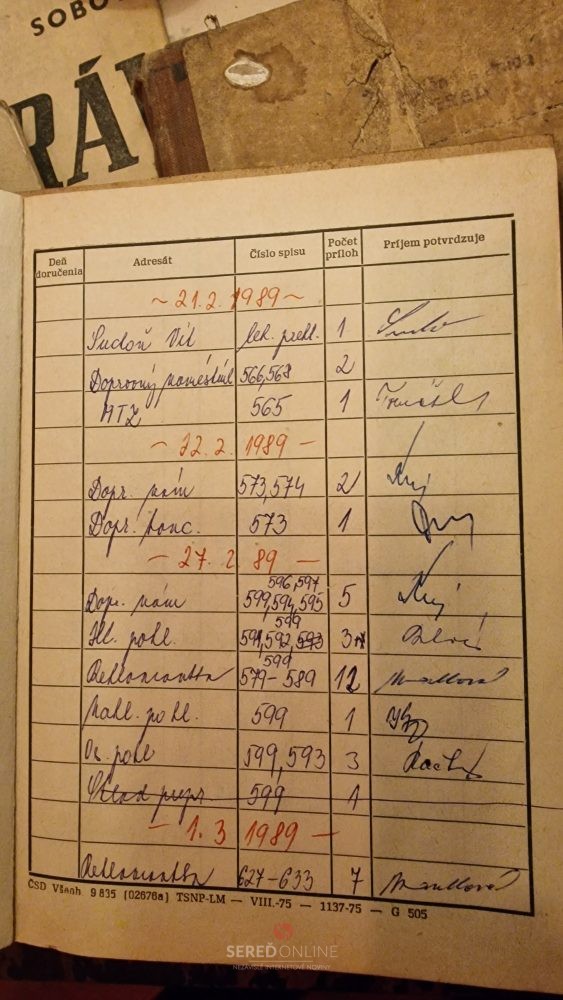 SOBO
RÁV
Deň doručenia Adresát Číslo spisu Počet príloh Príjem potvrdzuje
~ 21. 2. 1989 ~
Sudoň Vít lek. prehl. 1
Dopravný námestník 566,568 2
MTZ 565 1
- 22. 2. 1989 -
Dopr. nám 573,574 2
Dopr. 573 1
- 27. 2. 89 -
596,597
Dopr. nám 599,594,595 5
599
Hl. pokl. 591,592,593 3
599
Reklamantka 579-589 12
Nákl. pokl. 599 1
Os. pokl 599,593 3
Sklad prepr. 599 1
- 1. 3 1989 -
Reklamantka 627-633 7
ČSD Všeob 9 835 (02676a) TSNP-LM — VIII.-75 — 1137-75 — G 505
SEREĎONLINE
NEZÁVISLÉ INTERNETOVÉ NOVINY